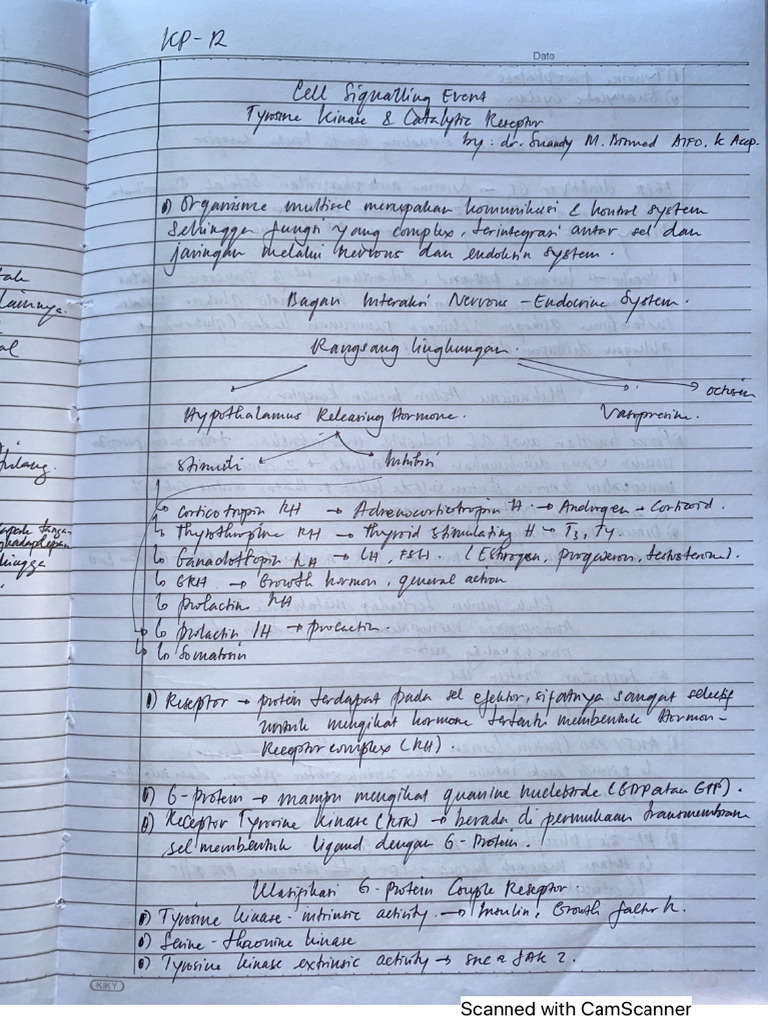 KP-12
Date
Cell Signalling Event
Tyrosine Kinase & Catalytic Receptor
by: dr. Suandy M. Biomed AIFO. K Acep.
Organisme multisel merupakan komunikasi & kontrol system
sehingga fungsi yang complex, terintegrasi antar sel dan
jaringan melalui nervous dan endokrin system.
Bagan Interaksi Nervous - Endocrine System.
Rangsang lingkungan.
Hypothalamus Releasing Hormone.
Vasopresine.
Stimuli
Inhibisi
Corticotropin RH → Adrenocorticotropin H. → Androgen - Corticoid.
RH → Thyroid stimulating H → T3, T4.
RH → LH, FSH. (Estrogen, testosterone).
GRH → Growth hormon, general action
Prolactin RH
Prolactin IH → prolactin.
Receptor → protein terdapat pada sel efektor, sifatnya sangat selectif
untuk mengikat hormone tertentu membentuk Hormon-
Receptor complex (RH).
G-protein → mampu mengikat quanine (GDP atau GTP).
Receptor Tyrosine Kinase (RTK) → berada di permukaan transmembran
sel membentuk ligand dengan G-Protein.
Klasifikasi G-Protein Couple Reseptor.
Tyrosine kinase - intrinsic activity → Insulin, Growth factor R.
Serine - thaonine kinase
Tyrosine kinase extrinsic activity →
KIKY
lainnya.
Scanned with CamScanner